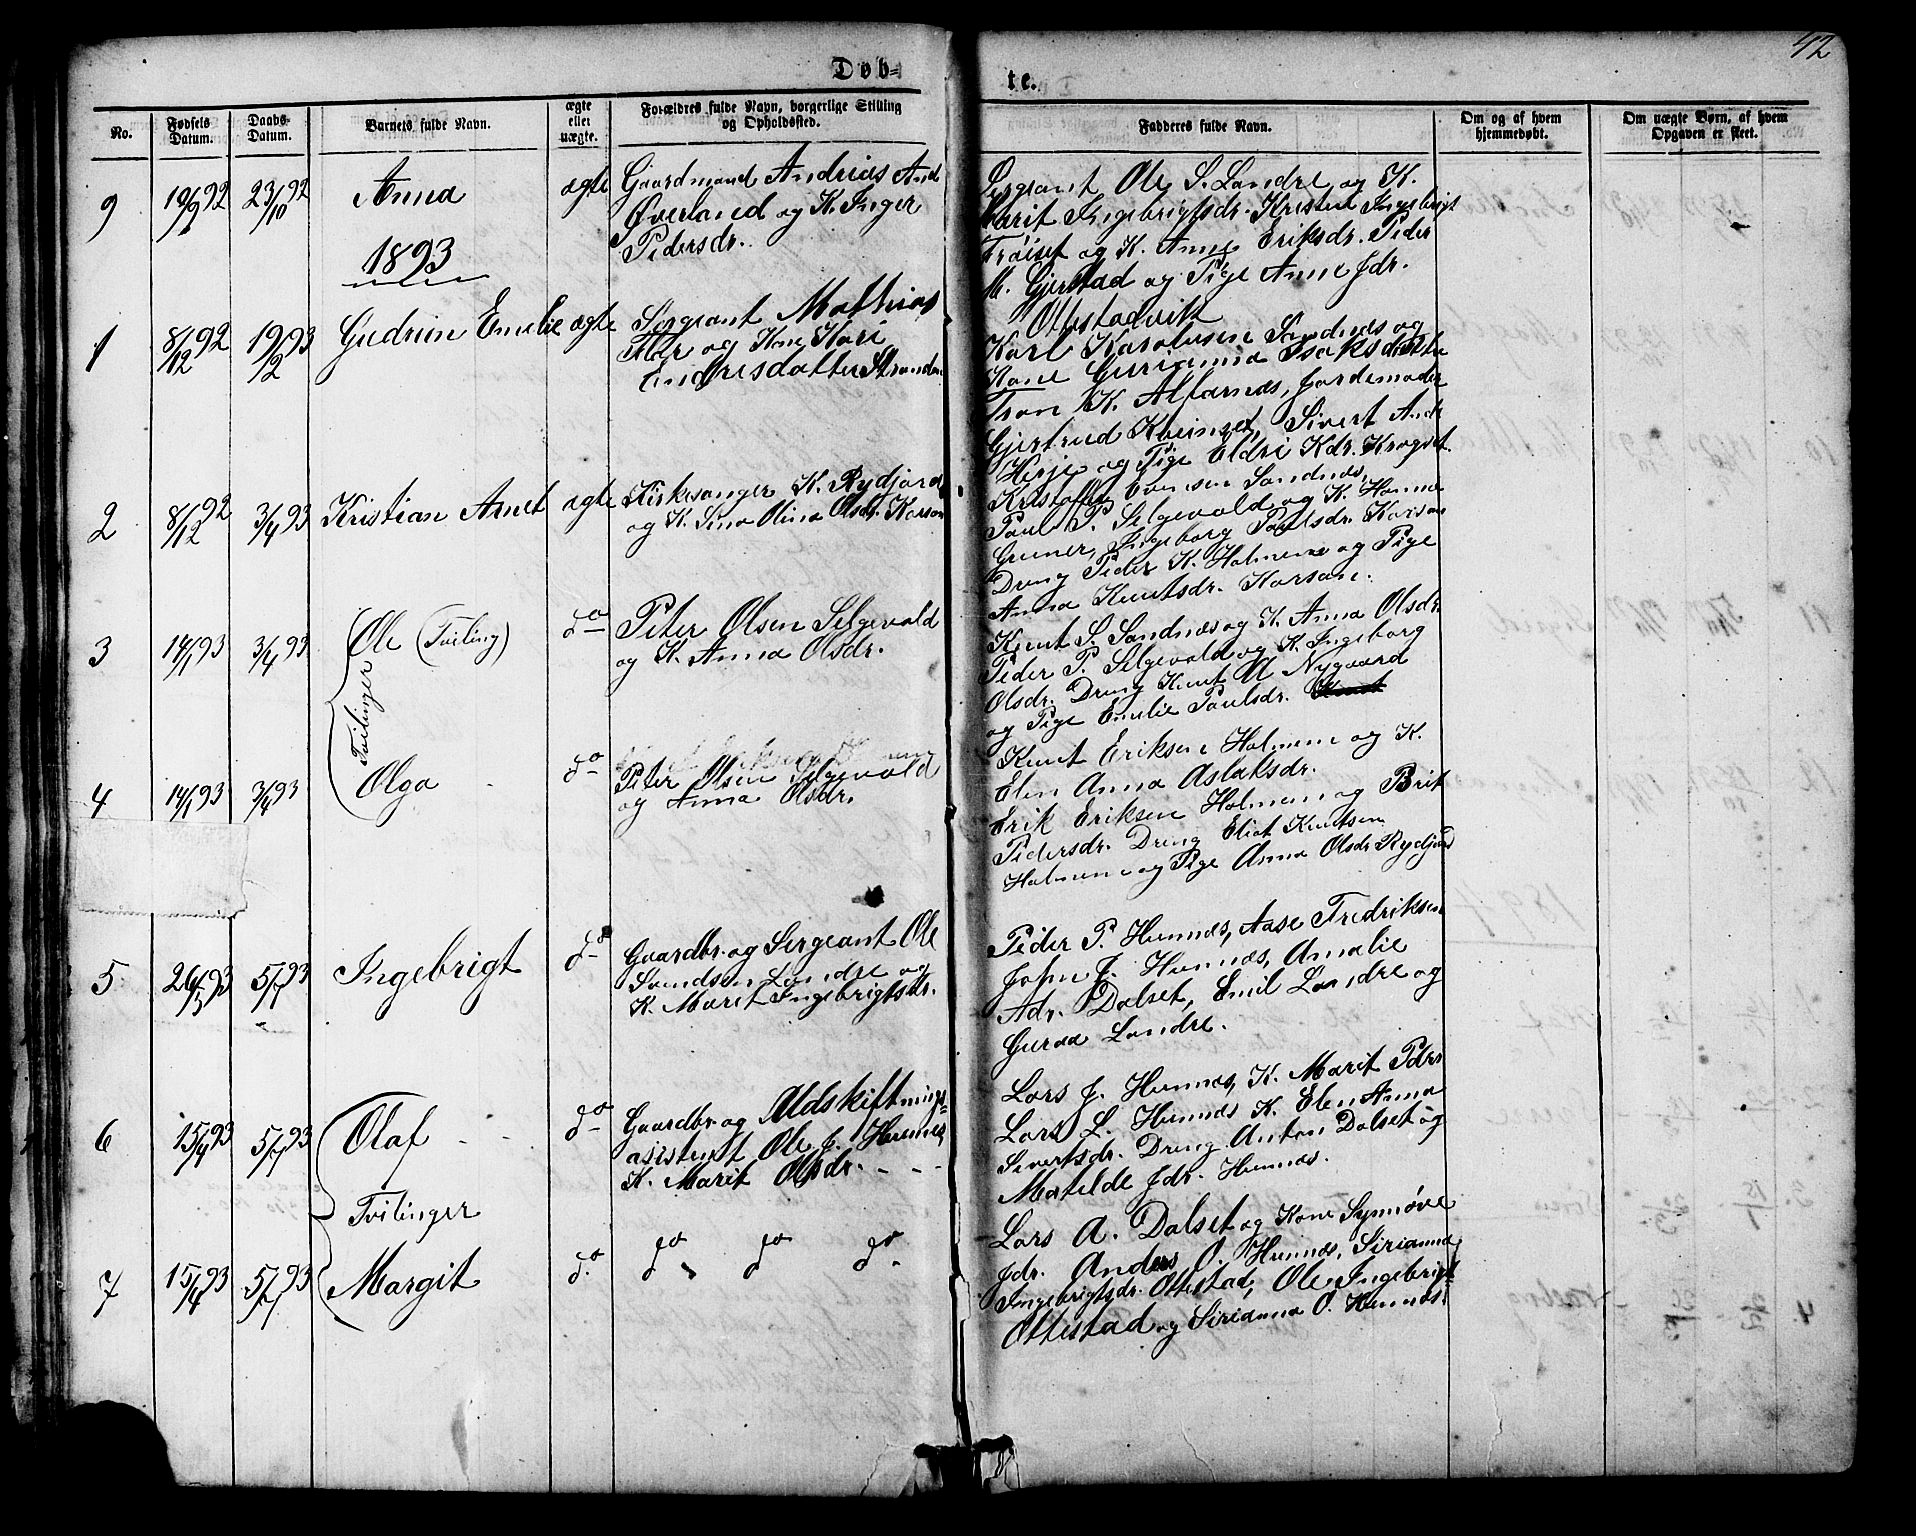 42
Døb-
te.
No.
Fødsels Datum.
Daabs-Datum.
Barnets fulde Navn.
ægte eller uægte.
Forældres fulde Navn, borgerlige Stilling og Opholdssted.
Fadderes fulde Navn.
Om og af hvem hjemmedøbt.
Om uægte Børn, af hvem Opgaven er skeet.
9
19/9 92
23/10 92
Anna
ægte
Gaardmand Andrias And
Øverland og K. Inger
Pedersdr.
Sergeant Ole S. Landre og K.
Marit Ingebrigtsdr. Kristen Ingebrigt
Frøiset og K. Anne Eriksdr. Peder
M. Gjerstad og Pige Anne Jdr.
Ottestadvik
1893
1
8/12 92
19/2 93
Gudrun Emelie
ægte
Sergeant Mathias
og Kone Kari
Endresdatter Stranden
Karl Karolusen Sandnæs og
Kone Gurianna Isaksdatter
Iver K. Alfarnæs, Jordemoder
Gjertrud Sivert Andr
Herje og Pige Eldri Kdr. Krogset.
2
8/12 92
3/4 93
Kristian Arnet
ægte
Kirkesanger K. Rydjord
og K. Sina Olina Olsdr. Korsan
Kristoffer Evensen Sandnæs,
Paul P. Selgevold og K. Hanna
Gruner, Ingeborg Paulsdr. Korsan
Dreng Peder K. Holmene og Pige
Anna Knutsdr. Korsan.
3
14/1 93
3/4 93
Ole (Tviling)
Tvilinger
do
Peter Olsen Selgevold
og K. Anna Olsdr.
Knut S. Sandnæs og K. Anna Olsdr
Peder P. Selgevold og K. Ingeborg
Olsdr. Dreng Knut A Nygaard
og Pige Emelie Paulsdr.
4
14/1 93
3/4 93
Olga
do
Peter Olsen Selgevold
og Anna Olsdr.
Knut Eriksen Holmem og K.
Elen Anna Aslaksdr.
Erik Eriksen Holmem og Brit
Pedersdr. Dreng Eliot Knutsen
Holmem og Pige Anna Olsdr Rydjord
5
26/3 93
5/7 93
Ingebrigt
do
Gaardbr. og Sergeant Ole
Svendsen Landre og
K. Marit Ingebrigtsdr.
Peder P. Hunnæs, Aase Fredriksen
John J. Hunnæs, Amalie
Adr. Dalset, Emil Landre og
Guroa Landre.
6
15/4 93
5/7 93
Olaf
do
Gaardbr. og Udskiftnings-
asistent Ole J. Hunnes
K. Marit Olsdr.
Lars J. Hunnæs, K. Marit Pdr.
Lars L. Hunnæs K. Elen Anna
Sivertsdr. Dreng Anton Dalset og
Matilde Jdr. Hunnæs.
Tvilinger
7
15/4 93
5/7 93
Margit
do
do do do
Lars A. Dalset og Kone Synnøve
Jdr. Anders O. Hunnæs, Sirianna
Ingebrigtsdr. Ottestad, Ole Ingebrigt
Ottestad og Sirianna O. Hunnæs.